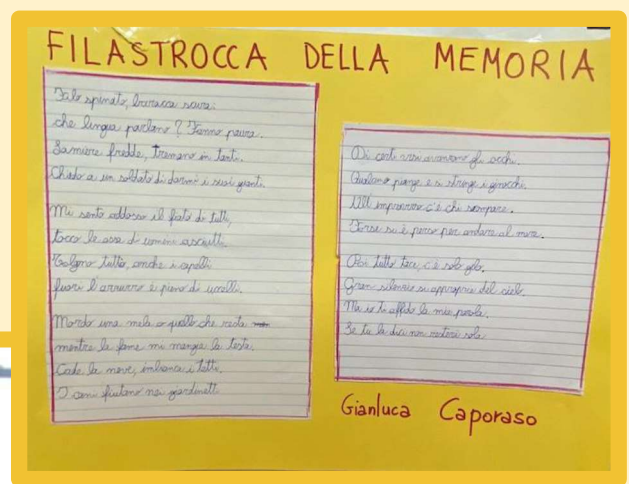 FILASTROCCA DELLA MEMORIA
Filo spinato, baracca scura.
che lingua parlano? Fanno paura.
Lamiere fredde, tremano in tanti.
Chiedo a un soldato di darmi i suoi guanti.
Mi sento addosso il fiato di tutti,
tocco le ossa di uomini asciutti.
Tolgono tutto, anche i capelli
fuori l'azzurro è pieno di uccelli.
Mordo una mela o quello che resta
mentre la fame mi mangia la testa.
Cade la neve, imbianca i tetti.
I cani fiutano nei giardinetti.
Di certi visi avanzano gli occhi.
Qualcuno piange e si stringe i ginocchi.
All'improvviso c'è chi scompare.
Forse si è perso per andare al mare.
Poi tutto tace, c'è solo gelo.
Gran silenzio si appropria del cielo.
Ma io ti affido la mia parola.
Se tu la dici non resterò sola
Gianluca Caporaso